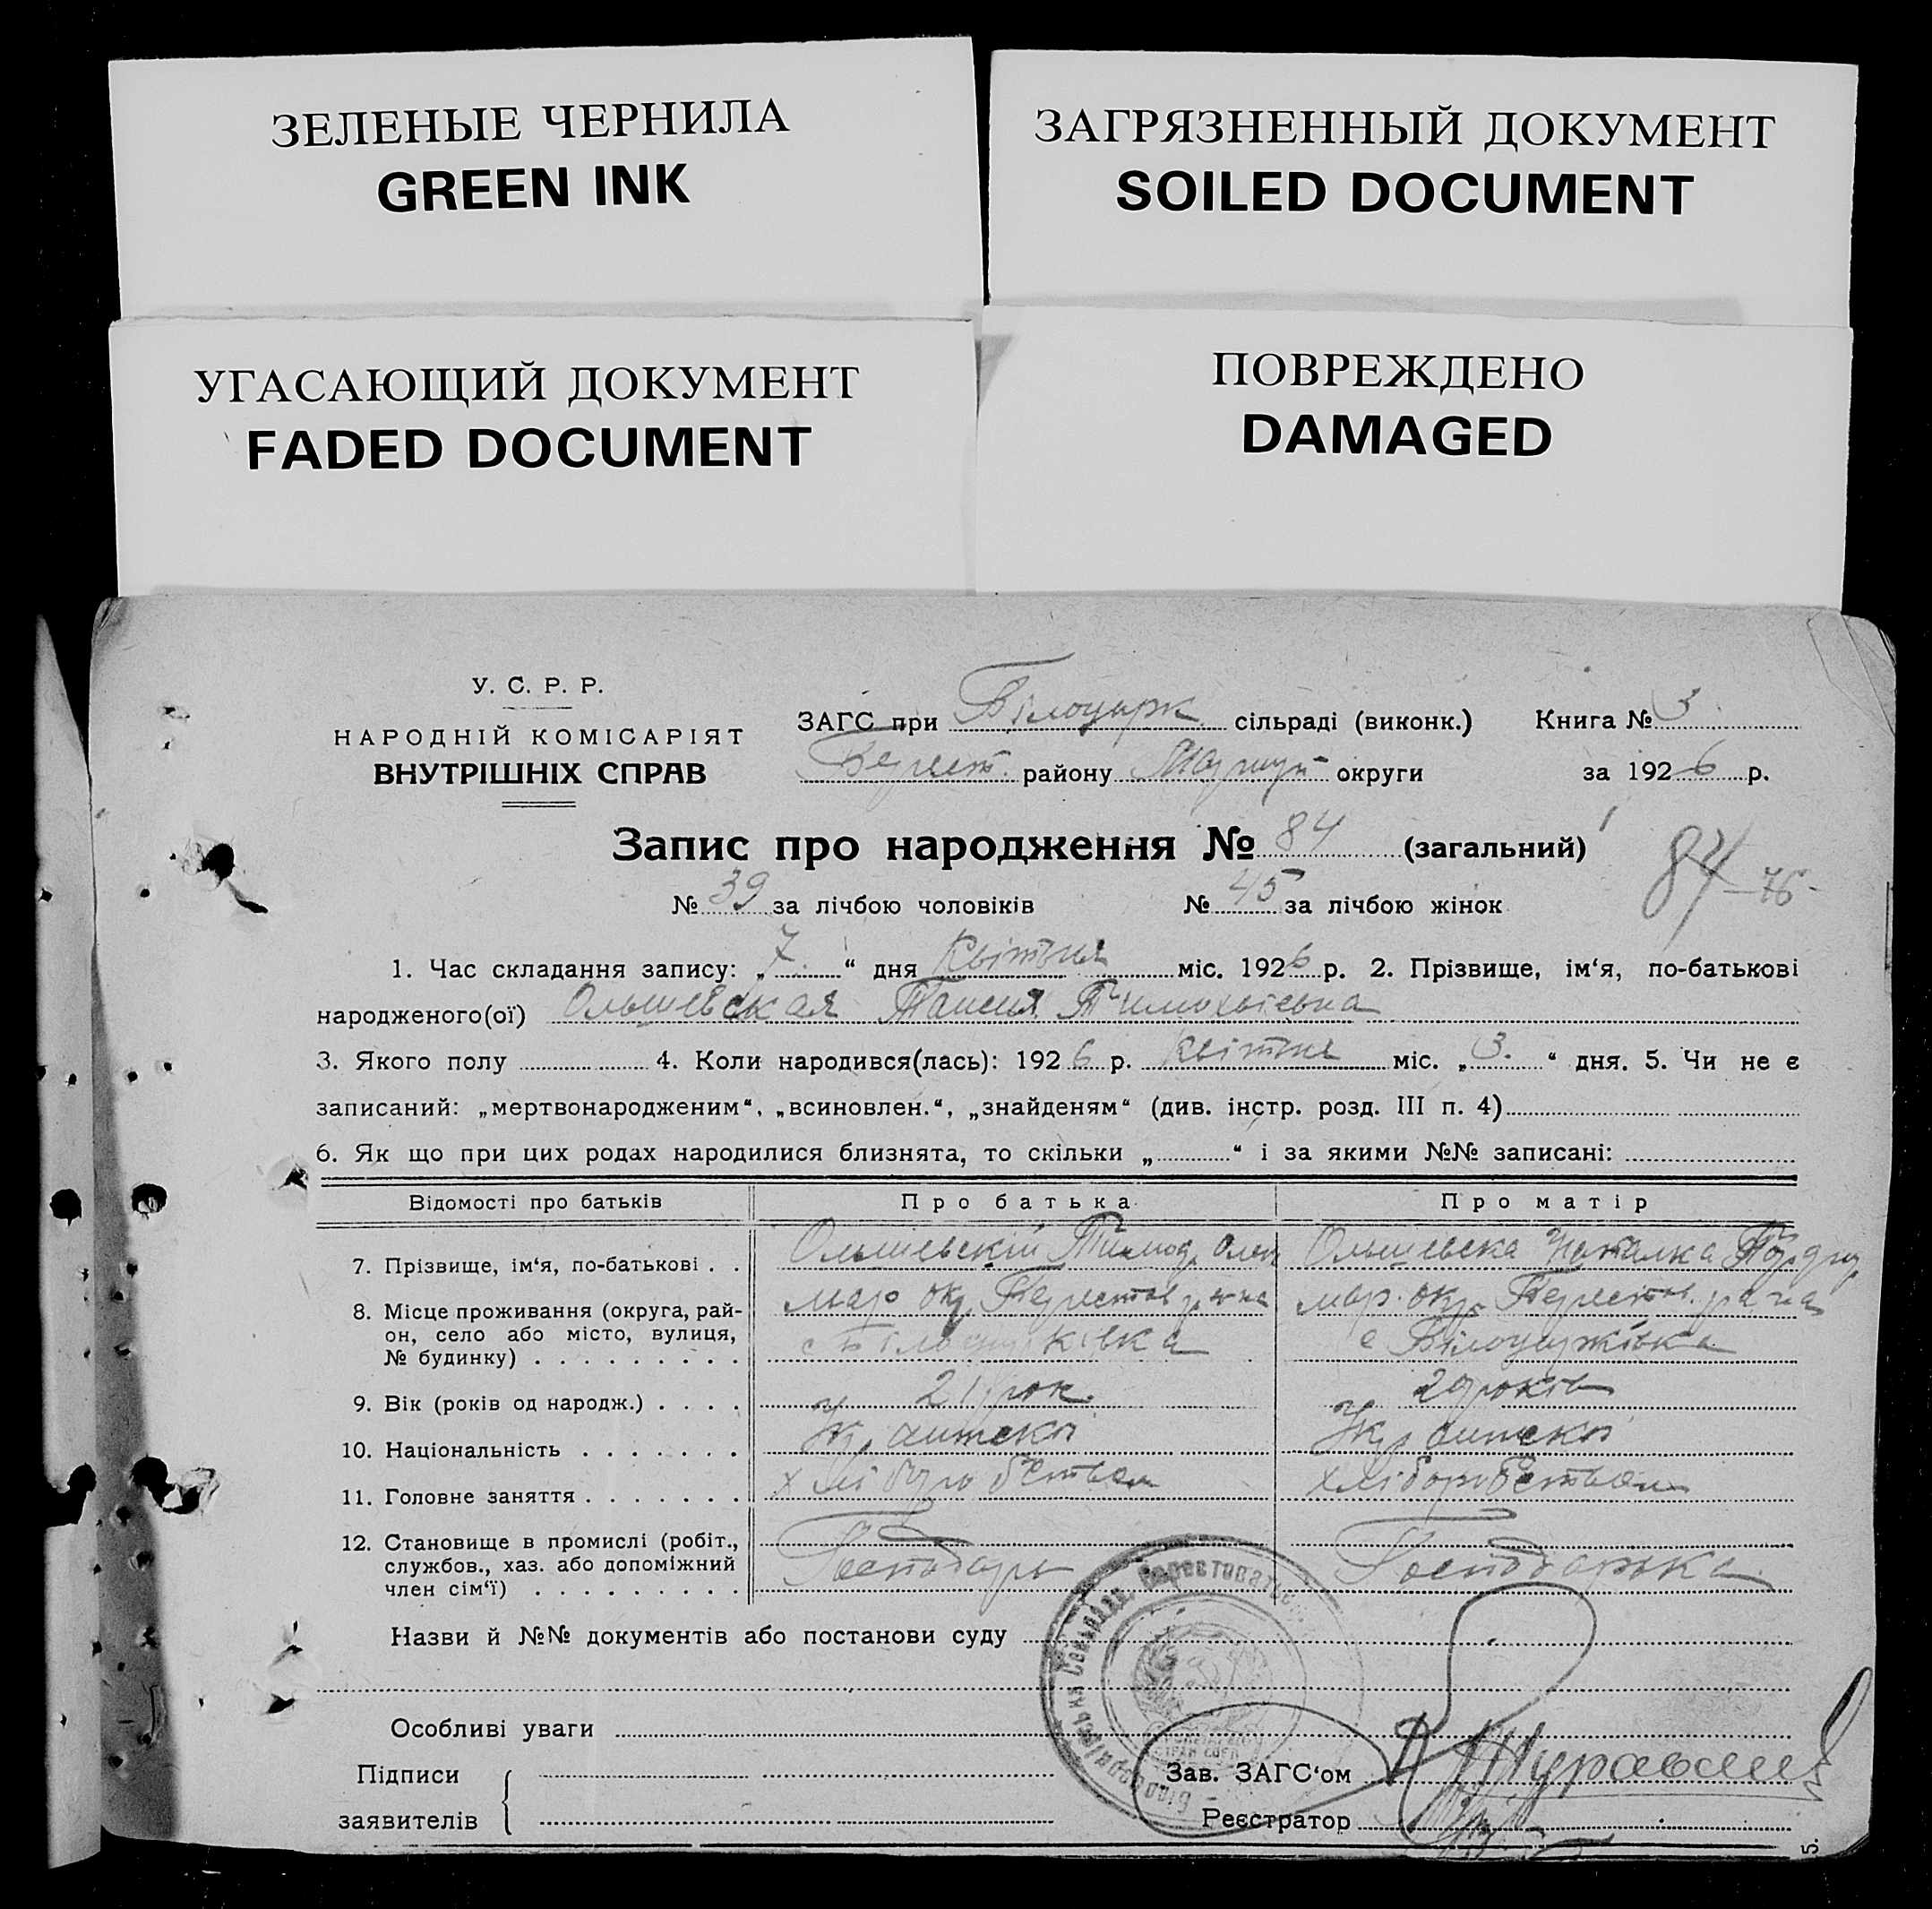 ЗЕЛЕНЫЕ ЧЕРНИЛА
GREEN INK
ЗАГРЯЗНЕННЫЙ ДОКУМЕНТ
SOILED DOCUMENT
УГАСАЮЩИЙ ДОКУМЕНТ
FADED DOCUMENT
ПОВРЕЖДЕНО
DAMAGED
У. С. Р. Р.
НАРОДНІЙ КОМІСАРІЯТ
ВНУТРІШНІХ СПРАВ
ЗАГС при Білоцерк сільраді (виконк.) Книга № 3
району округи за 1926 р.
Запис про народження № 84 (загальний)
84
№ 39 за лічбою чоловіків № 45 за лічбою жінок
1. Час складання запису: „7“ дня Квітня міс. 1926 р. 2. Прізвище, ім‘я, по-батькові
народженого(ої) Ольшевская Таисия
3. Якого полу 4. Коли народився(лась): 1926 р. Квітня міс. „3.“ дня. 5. Чи не є
записаний: „мертвонародженим“, „всиновлен.“, „знайденям“ (див. інстр. розд. III п. 4)
6. Як що при цих родах народилися близнята, то скільки „ “ і за якими №№ записані:
Відомості про батьків Про батька Про матір
7. Прізвище, ім‘я, по-батькові . . Ольшевскій Ольшевска Наталка
8. Місце проживання (округа, рай-он, село або місто, вулиця, № будинку) . . . . . . . . . мар. окр.
с
9. Вік (років од народж.) . . . . 21 рок. 20 років
10. Національність . . . . . . .
11. Головне заняття . . . . . . . хліборобством хліборобством
12. Становище в промислі (робіт., службов., хаз. або допоміжний член сім‘ї) . . . . . . . . . Господарь Господарька
Назви й №№ документів або постанови суду
Особливі уваги
Підписи
заявителів
Зав. ЗАГС‘ом
Реєстратор
5.